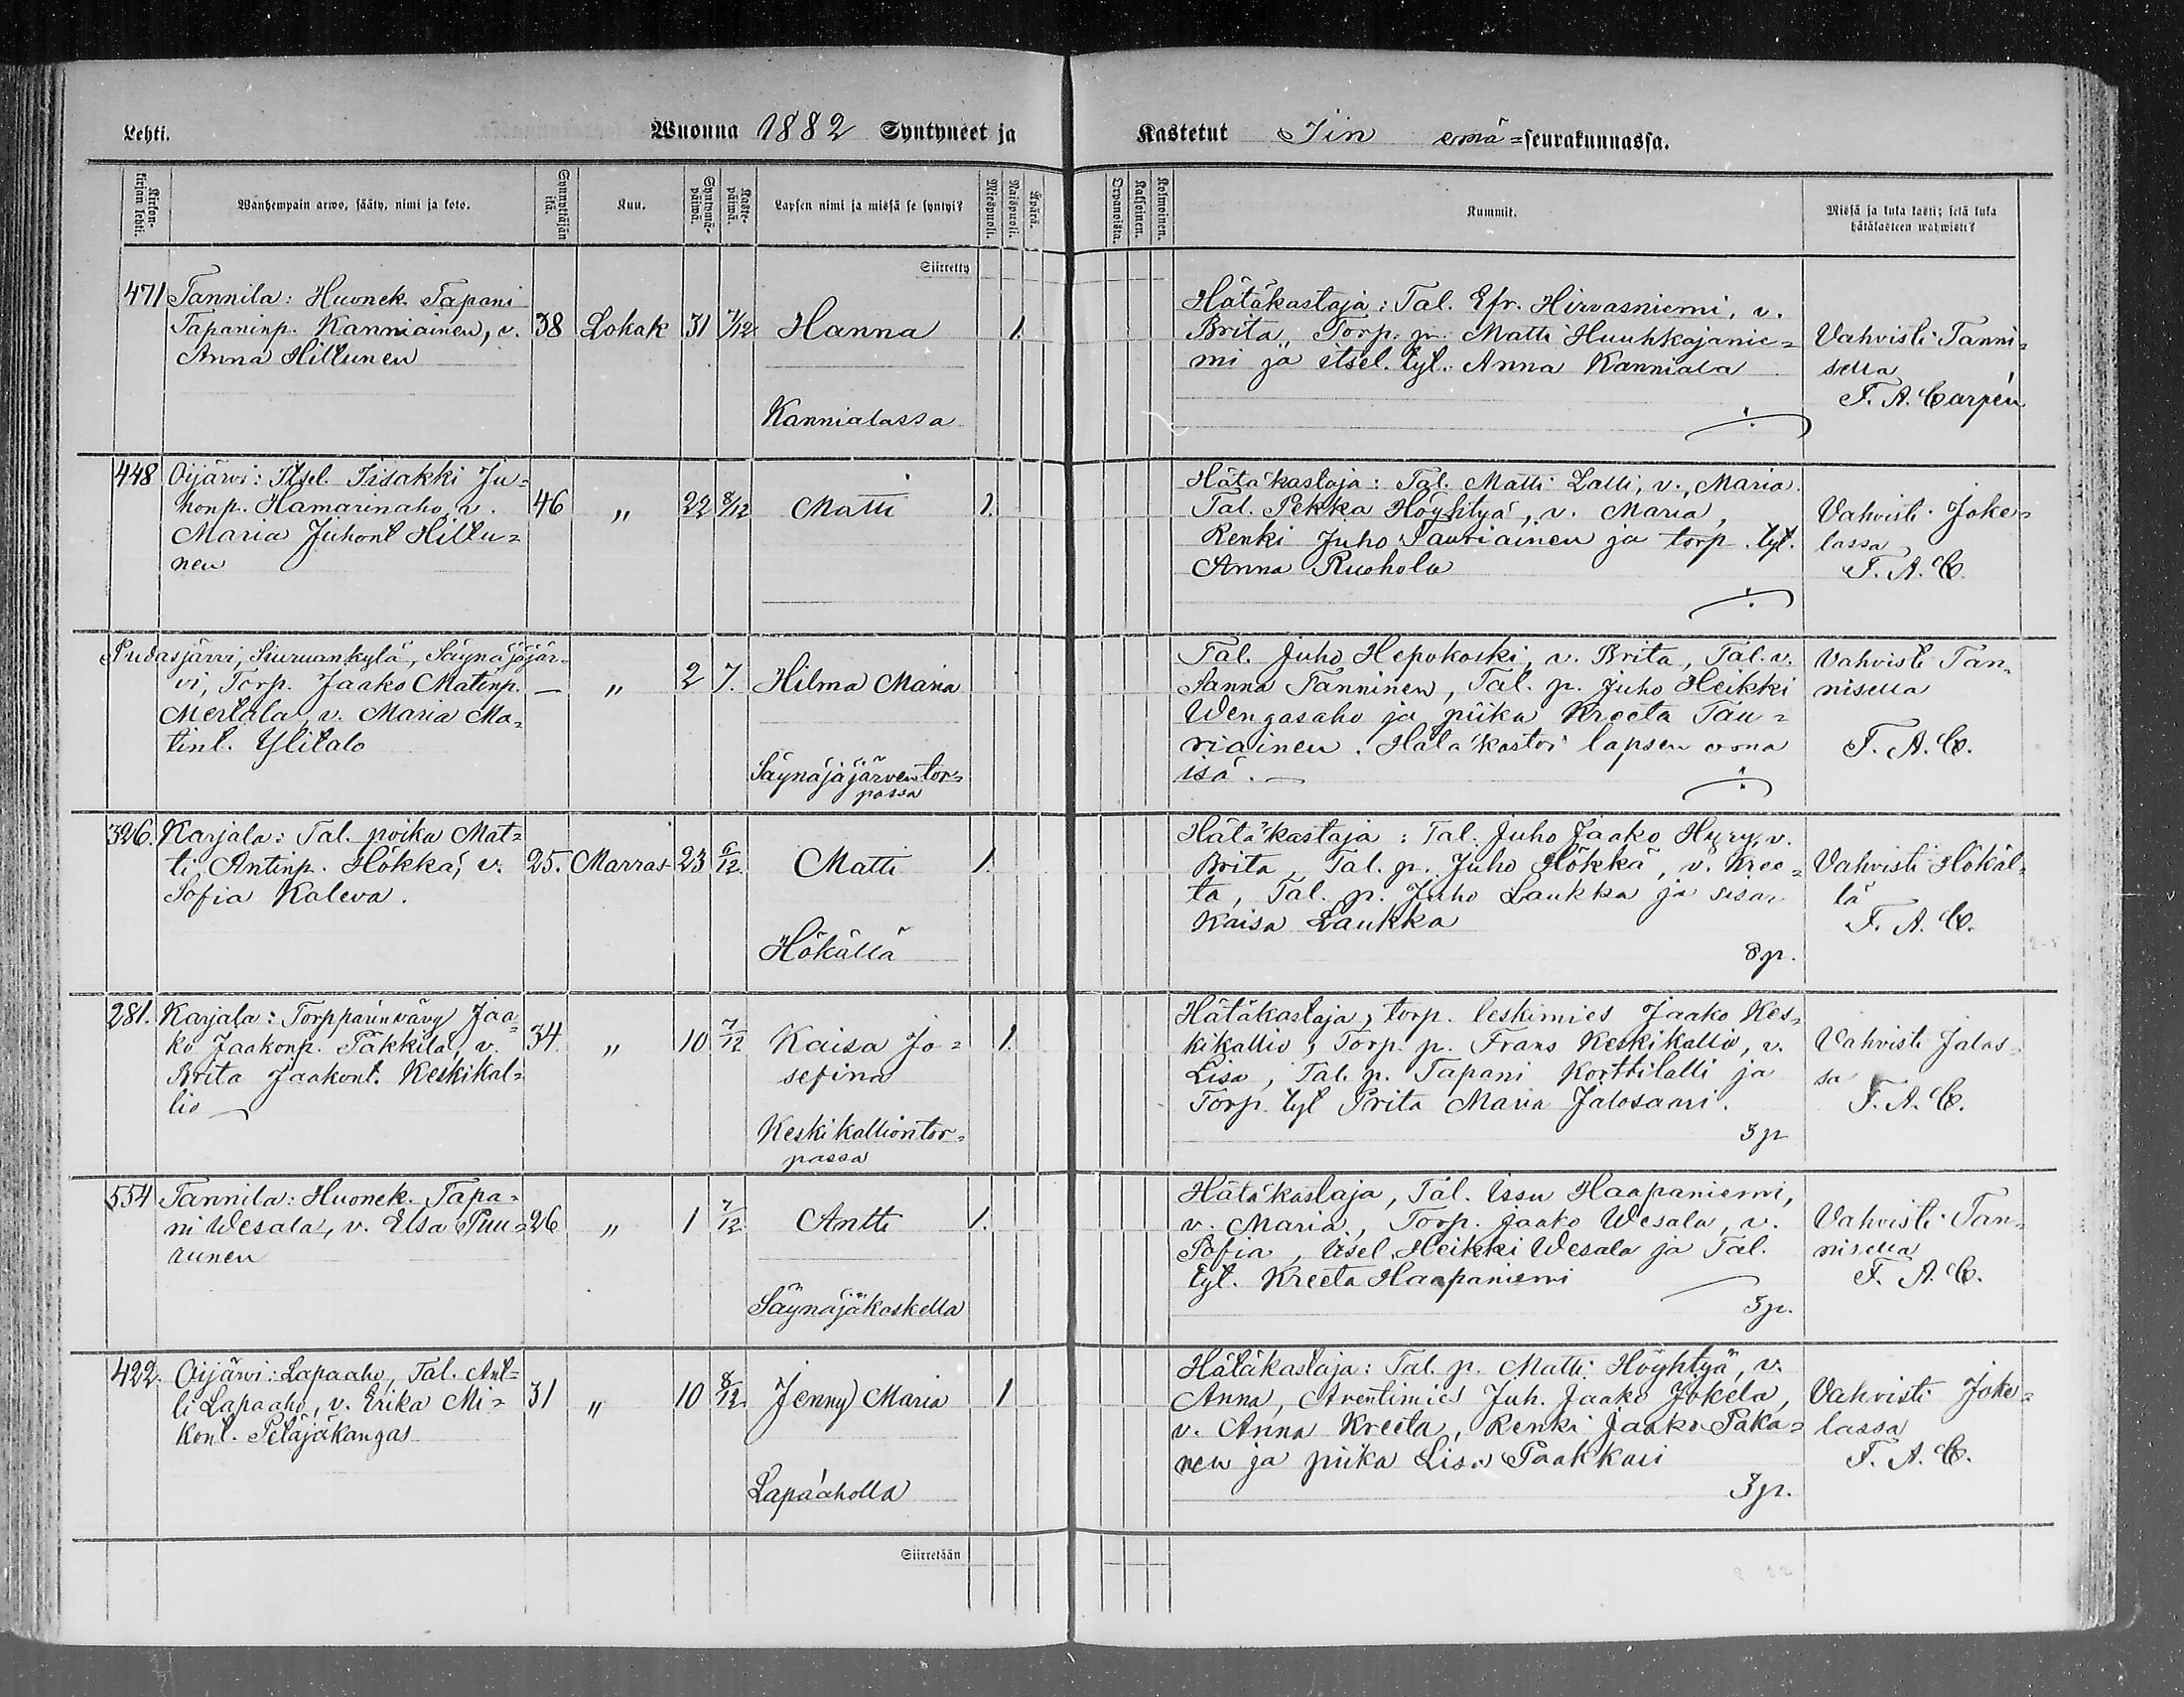 Lehti.
Wuonna 1882 Syntyneet ja
Kastetut Iin emä=seurakunnassa.
Kirkon-kirjan lehti.
Wanhempain arwo, sääty, nimi ja koto.
Synnyttäjän ikä.
Kuu.
Syntymä-päiwä.
Kaste-päiwä.
Lapsen nimi ja missä se syntyi?
Miespuoli.
Naispuoli.
Äpärä.
Orpanoista.
Kaksoinen.
Kolmoinen.
Kummit.
Missä ja kuka kasti; sekä kuka
hätäkasteen wahwisti?
Siirretty
471
Tannila: Huonek. Tapani
Tapaninp. Kanniainen, v.
Anna Hiltunen
38 Lokak 31 7/12 Hanna 1.
Kannialassa
Hätäkastaja: Tal. Efr. Hirvasniemi, v.
Brita, Torp. p. Matti Huuhkajanie=
mi ja itsel. tyt. Anna Kanniala
Vahvisti Tanni=
sella
F. A. Carpén
448
Oijärvi: Itsel. Iisakki Ju=
honp. Hamarinaho, v.
Maria Juhont Hiltu=
nen
46 " 22 8/12 Matti 1.
Hätäkastaja: Tal. Matti Lalli, v. Maria.
Tal. Pekka Höyhtyä, v. Maria,
Renki Juho Tauriainen ja torp. tyt.
Anna Ruohola
Vahvisti Joke=
lassa
F. A. C.
Pudasjärvi, Siuruankylä, Säynäjäjär=
vi, Torp. Jaako Matinp.
Mertala, v. Maria Ma=
tint. Ylitalo
— " 2 7. Hilma Maria
Säynäjäjärven tor=
passa
Tal. Juho Hepokoski, v. Brita, Tal. v.
Sanna Tanninen, Tal. p. Juho Heikki
Wengasaho ja piika Kreeta Tau=
riainen. Hätäkastoi lapsen oma
isä. —
Vahvisti Tan=
nisella
F. A. C.
326.
Karjala: Tal. poika Mat=
ti Antinp. Hökkä, v.
Sofia Kaleva.
25. Marras 23 6/12 Matti 1.
Hökällä
Hätäkastaja: Tal. Juho Jaako Hyry, v.
Brita, Tal. p. Juho Hökkä, v. Kree=
ta, Tal. p. Juho Laukka ja sisar
Kaisa Laukka
8 p.
Vahvisti Hökäl=
lä
F. A. C.
281.
Karjala: Torpparinvävy Jaa=
ko Jaakonp. Päkkilä, v.
Brita Jaakont. Keskikal=
lio
34. " 10 7/12 Kaisa Jo=
sefina
1.
Keskikallion tor=
passa
Hätäkastaja, torp. leskimies Jaako Kes=
kikallio, Torp. p. Frans Keskikallio, v.
Lisa, Tal. p. Tapani Korttilalli ja
Torp. tyt Prita Maria Jalosaari.
3 p
Vahvisti Jalos=
sa
F. A. C.
554
Tannila: Huonek. Tapa=
ni Wesala, v. Elsa Puu=
runen
26 " 1 7/12 Antti 1.
Säynäjäkoskella
Hätäkastaja, Tal. Issu Haapaniemi,
v. Maria, Torp. Jaako Wesala, v.
Sofia, itsel. Heikki Wesala ja Tal.
tyt. Kreeta Haapaniemi
3 p.
Vahvisti Tan=
nisella
F. A. C.
422.
Oijärvi: Lapaaho, Tal. Ant=
ti Lapaaho, v. Erika Mi=
kont. Petäjäkangas
31 " 10 8/12 Jenny Maria 1
Lapaaholla
Hätäkastaja: Tal. p. Matti Höyhtyä, v.
Anna, Arentimies Juh. Jaako Jokela,
v. Anna Kreeta, Renki Jaako Paka=
nen ja piika Lisa Paakkari
3 p.
Vahvisti Joke=
lassa
F. A. C.
Siirretään